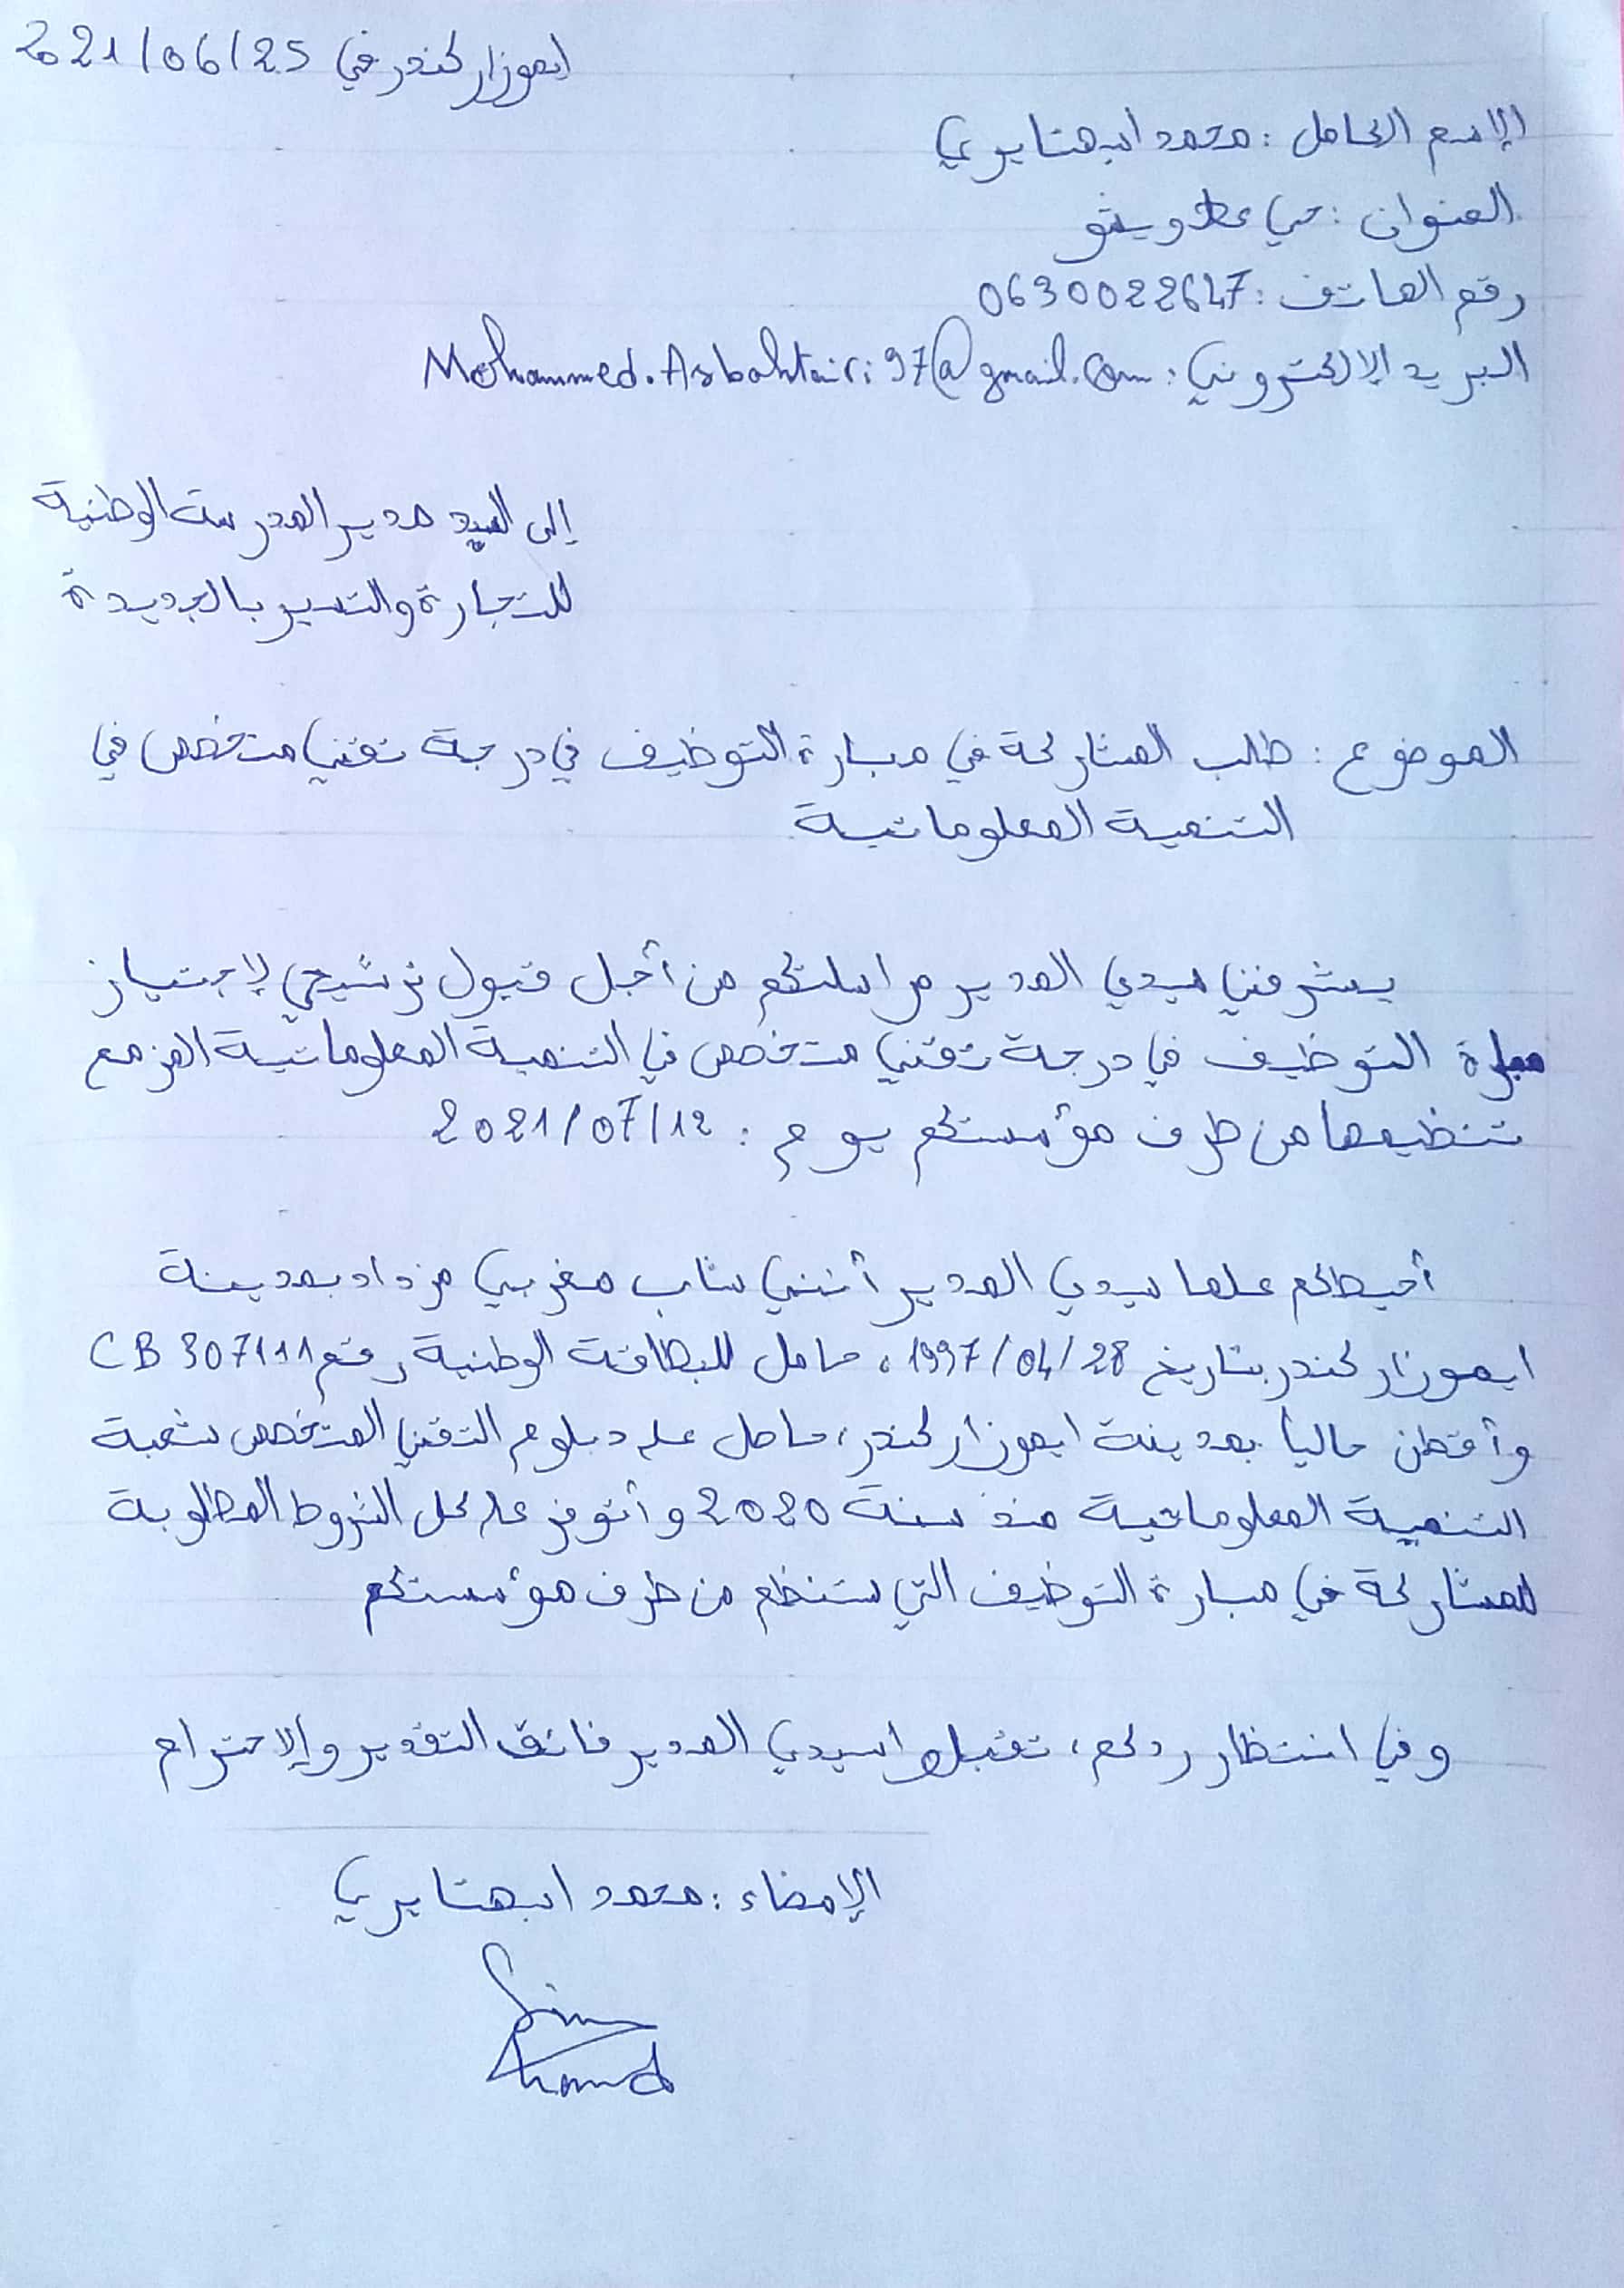 ايموزار كندر في 2021/06/25
الإسم الكامل : محمد اسبهتايري
العنوان : حي
رقم الهاتف : 0630022647
البريد الإلكتروني : Mohammed.Asbahtairi97@gmail.com
إلى السيد مدير المدرسة الوطنية
للتجارة والتسيير بالجديدة
الموضوع : طلب المشاركة في مباراة التوظيف في درجة تقني متخصص في
التنمية المعلوماتية
يشرفني سيدي المدير مراسلتكم من أجل قبول ترشيحي لإجتياز
مباراة التوظيف في درجة تقني متخصص في التنمية المعلوماتية المزمع
تنظيمها من طرف مؤسستكم يوم : 2021/07/12
أحيطكم علما سيدي المدير أنني شاب مغربي مزداد بمدينة
ايموزار كندر بتاريخ 1997/04/28، حامل للبطاقة الوطنية رقم CB307111
وأقطن حاليا بمدينة ايموزار كندر، حاصل على دبلوم التقني المتخصص شعبة
التنمية المعلوماتية منذ سنة 2020 وأتوفر على كل الشروط المطلوبة
للمشاركة في مباراة التوظيف التي ستنظم من طرف مؤسستكم
وفي انتظار ردكم، تقبلوا سيدي المدير فائق التقدير والإحترام
الإمضاء : محمد اسبهتايري